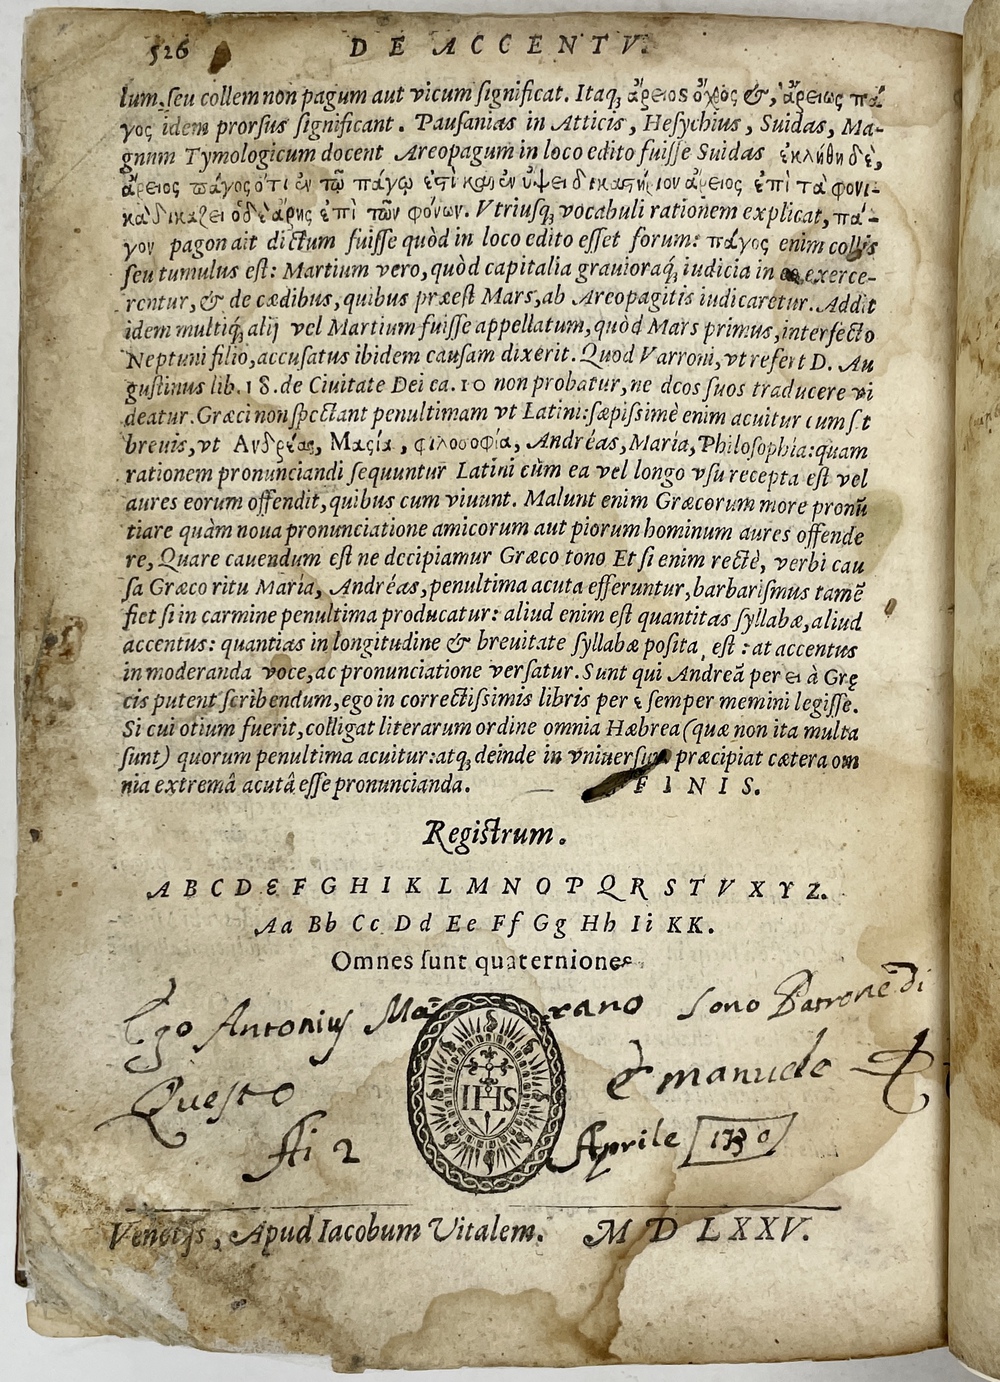 526 DE ACCENTV.
lum, seu collem non pagum aut vicum significat. Itaq; ἄρειος ὄχθος &, ἄρειως πά
γος idem prorsus significant. Pausanias in Atticis, Hesychius, Suidas, Ma-
gnum Tymologicum docent Areopagum in loco edito fuisse Suidas ἐκλήθη δὲ,
ἄρειος πάγος ὅτι ἐν τῷ πάγῳ ἐστὶ καὶ ἐν ὕψει δικαστήριον ἄρειος ἐπὶ τὰ φονι-
κὰ δικάζει ὁ δὲ ἄρης ἐπὶ τῶν φόνων. Vtriusq; vocabuli rationem explicat, πά-
γον pagon ait dictum fuisse quòd in loco edito esset forum: πάγος enim collis
seu tumulus est: Martium vero, quòd capitalia grauioraq́; iudicia in exerce-
rentur, & de cædibus, quibus præest Mars, ab Areopagitis iudicaretur. Addit
idem multiq́; alij vel Martium fuisse appellatum, quòd Mars primus, interfecto
Neptuni filio, accusatus ibidem causam dixerit. Quod Varroni, vt refert D. Au
gustinus lib. 18. de Ciuitate Dei ca. 10 non probatur, ne deos suos traducere vi
deatur. Græci non spectant penultimam vt Latini: sæpissimè enim acuitur cum sit
breuis, vt Ανδρέας, Μαρία, φιλοσοφία, Andréas, Maria, Philosophia: quam
rationem pronunciandi sequuntur Latini cùm ea vel longo vsu recepta est vel
aures eorum offendit, quibus cum viuunt. Malunt enim Græcorum more pronũ
tiare quàm noua pronunciatione amicorum aut piorum hominum aures offende
re, Quare cauendum est ne decipiamur Græco tono Et si enim rectè, verbi cau
sa Græco ritu María, Andréas, penultima acuta efferuntur, barbarismus tamẽ
fiet si in carmine penultima producatur: aliud enim est quantitas syllabæ, aliud
accentus: quantias in longitudine & breuitate syllabæ posita, est : at accentus
in moderanda voce, ac pronunciatione versatur. Sunt qui Andreã per ει à Grę
cis putent scribendum, ego in correctissimis libris per ε semper memini legisse.
Si cui otium fuerit, colligat literarum ordine omnia Hæbrea (quæ non ita multa
sunt) quorum penultima acuitur: atq; deinde in vniuersum præcipiat cætera om
nia extremâ acutâ esse pronuncianda. FINIS.
Registrum.
A B C D E F G H I K L M N O P Q R S T V X Y Z.
Aa Bb Cc Dd Ee Ff Gg Hh Ii KK.
Omnes sunt quaterniones
Ego Antonius rano sono Patrone di
Questo Emanuele
Ai 2 Aprile 1730
IHS
Venetijs, Apud Iacobum Vitalem. M D LXXV.